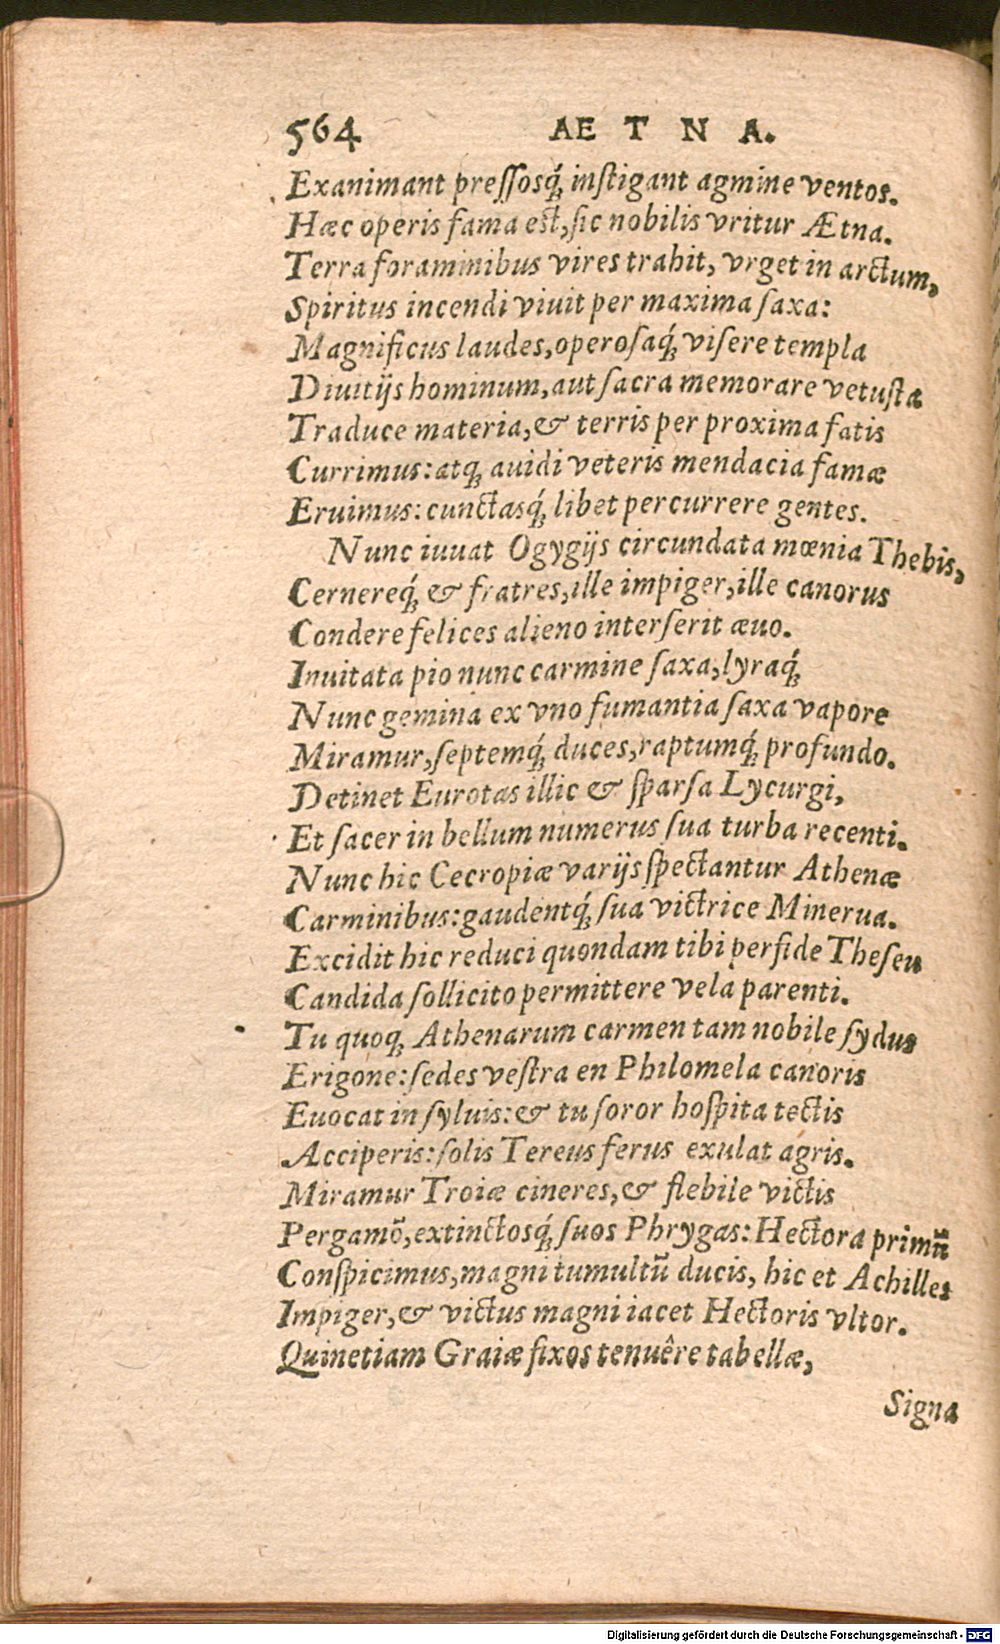 564 AETNA.
Exanimant preſſosq́; inſtigant agmine ventos.
Hæc operis fama eſt, ſic nobilis vritur Ætna.
Terra foraminibus vires trahit, vrget in arctum,
Spiritus incendi viuit per maxima ſaxa:
Magnificus laudes, operoſaq́; viſere templa
Diuitijs hominum, aut ſacra memorare vetuſta
Traduce materia, & terris per proxima fatis
Currimus: atq; auidi veteris mendacia famæ
Eruimus: cunctasq́; libet percurrere gentes.
Nunc iuuat Ogygijs circundata mœnia Thebis,
Cernereq́; & fratres, ille impiger, ille canorus
Condere felices alieno interſerit æuo.
Inuitata pio nunc carmine ſaxa, lyraq́;
Nunc gemina ex vno fumantia ſaxa vapore
Miramur, ſeptemq́; duces, raptumq́; profundo.
Detinet Eurotas illic & ſparſa Lycurgi,
Et ſacer in bellum numerus ſua turba recenti.
Nunc hic Cecropiæ varijs ſpectantur Athenæ
Carminibus: gaudentq́; ſua victrice Minerua.
Excidit hic reduci quondam tibi perfide Theſeu
Candida ſollicito permittere vela parenti.
Tu quoq; Athenarum carmen tam nobile ſydus
Erigone: ſedes veſtra en Philomela canoris
Euocat in ſyluis: & tu ſoror hoſpita tectis
Acciperis: ſolis Tereus ferus exulat agris.
Miramur Troiæ cineres, & flebile victis
Pergamō, extinctosq́; ſuos Phrygas: Hectora primū
Conſpicimus, magni tumultū ducis, hic et Achilles
Impiger, & victus magni iacet Hectoris vltor.
Quinetiam Graiæ fixos tenuêre tabellæ,
Signa
Digitalisierung gefördert durch die Deutsche Forschungsgemeinschaft - DFG